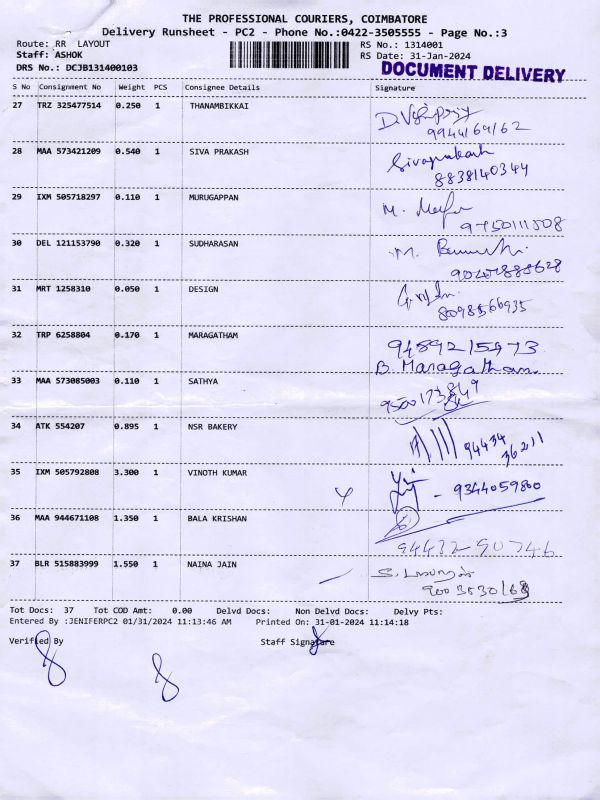 THE PROFESSIONAL COURIERS, COIMBATORE
Delivery Runsheet - PC2 - Phone No.:0422-3505555 - Page No.:3
Route: RR LAYOUT
RS No.: 1314001
Staff: ASHOK
RS Date: 31-Jan-2024
DRS No.: DCJB131400103
DOCUMENT DELIVERY
S No Consignment No Weight PCS Consignee Details Signature
27 TRZ 325477514 0.250 1 THANAMBIKKAI
9944164162
28 MAA 573421209 0.540 1 SIVA PRAKASH Sivaprakash
8838140344
29 IXM 505718297 0.110 1 MURUGAPPAN M.
30 DEL 121153790 0.320 1 SUDHARASAN M.
31 MRT 1258310 0.050 1 DESIGN
32 TRP 6258804 0.170 1 MARAGATHAM 9489215973
B. Maragatham
33 MAA 573085003 0.110 1 SATHYA
34 ATK 554207 0.895 1 NSR BAKERY 94434
36211
35 IXM 505792808 3.300 1 VINOTH KUMAR - 9344059800
36 MAA 944671108 1.350 1 BALA KRISHAN
94432-90746
37 BLR 515883999 1.550 1 NAINA JAIN S.
Tot Docs: 37 Tot COD Amt: 0.00 Delvd Docs: Non Delvd Docs: Delvy Pts:
Entered By :JENIFERPC2 01/31/2024 11:13:46 AM Printed On: 31-01-2024 11:14:18
Verified By Staff Signature